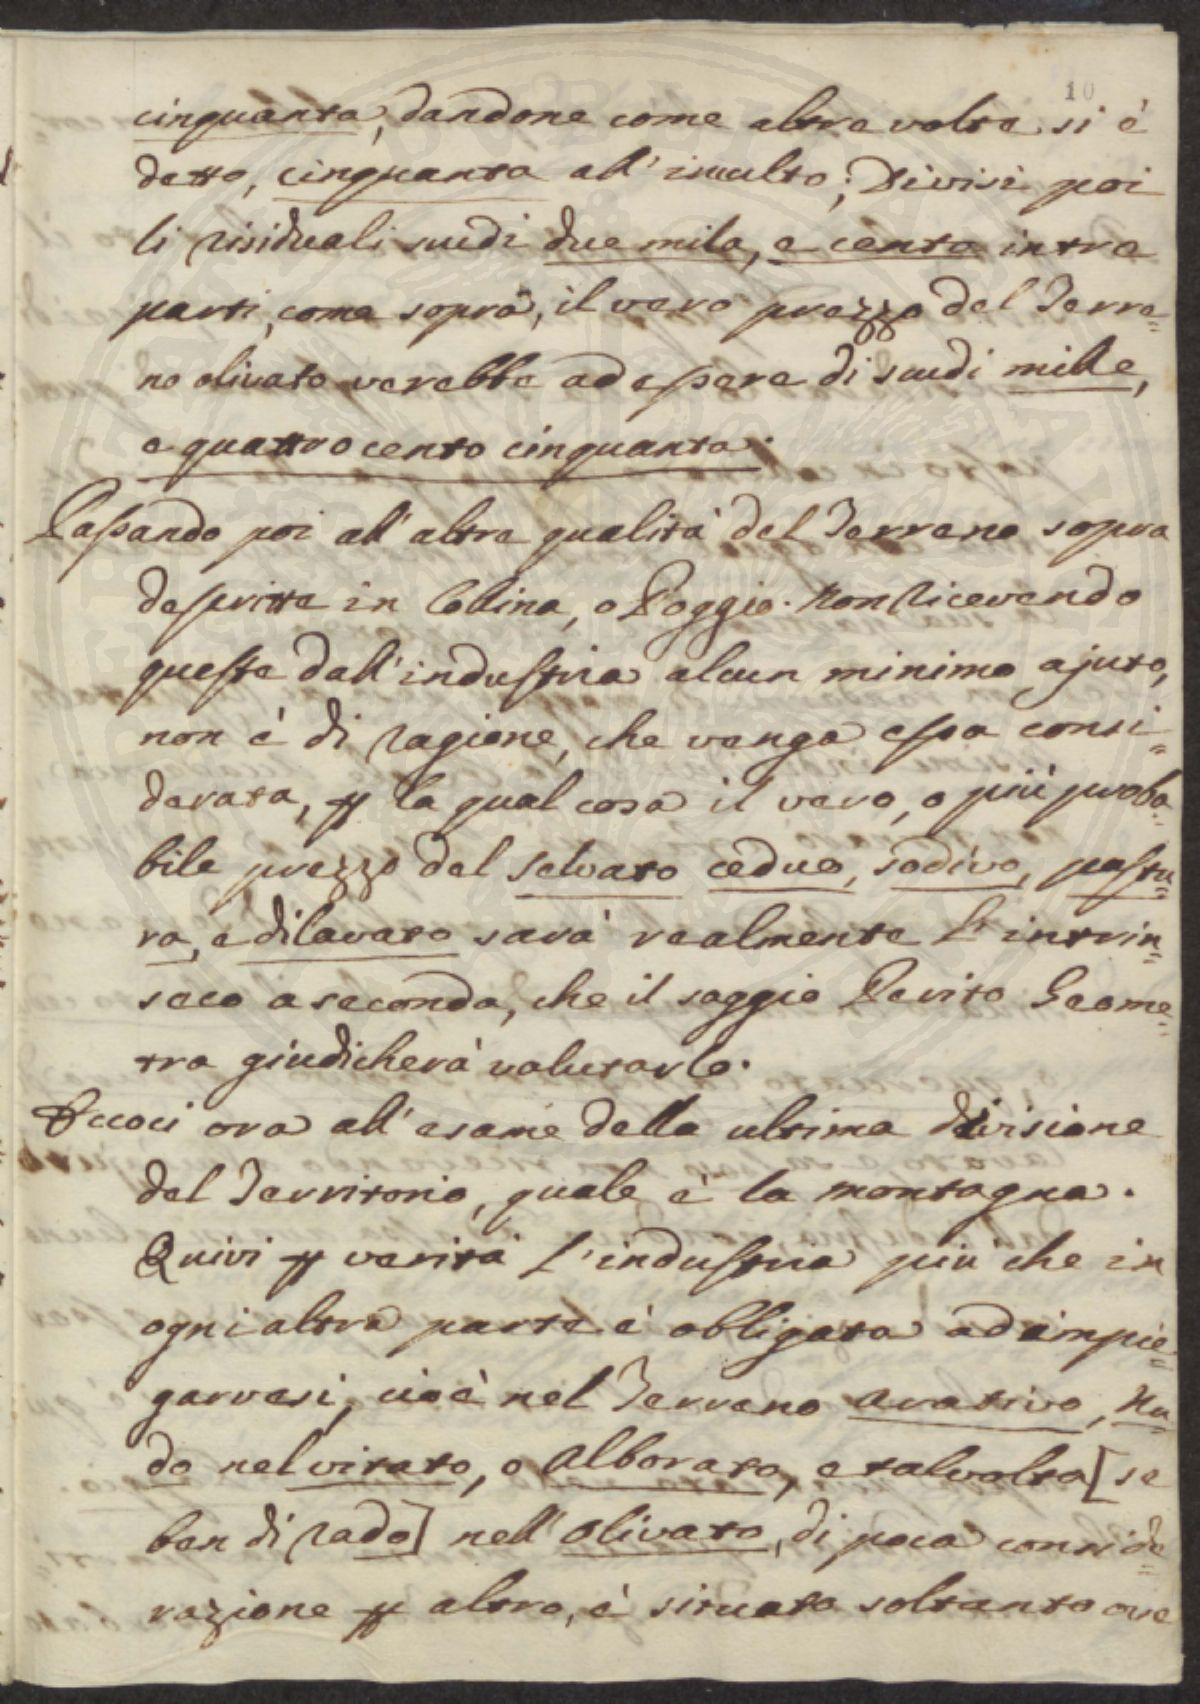 10
cinquanta, dandone come altre volte si è
detto, cinquanta all' inculto; Divisi poi
li risiduali scudi due mila, e cento in tre
parti, come sopra, il vero prezzo del Terre=
no olivato verebbe ad essere di scudi mille,
e quattrocento cinquanta.
Passando poi all' altre qualità del Terreno sopra
descritte in Collina, o Poggio. Non ricevendo
queste dall' industria alcun minimo ajuto,
non è di ragione, che venga essa consi=
derata, p la qual cosa il vero, o più proba=
bile prezzo del selvato ceduo, sodivo, pastu=
ra, e dilavato sarà realmente l' intrin=
seco a seconda, che il saggio Perito Geome=
tra giudicherà valutarlo.
Eccoci ora all' esame della ultima divisione
del Territorio, quale è la montagna.
Quivi p verità l' industria più che in
ogni altra parte è obligata ad impie=
garvesi, cioè nel Terreno arativo, Nu=
do nel vitato, o alborato, e talvolta [se
ben di rado] nell' olivato, di poca conside=
razione p altro, è situato soltanto ove